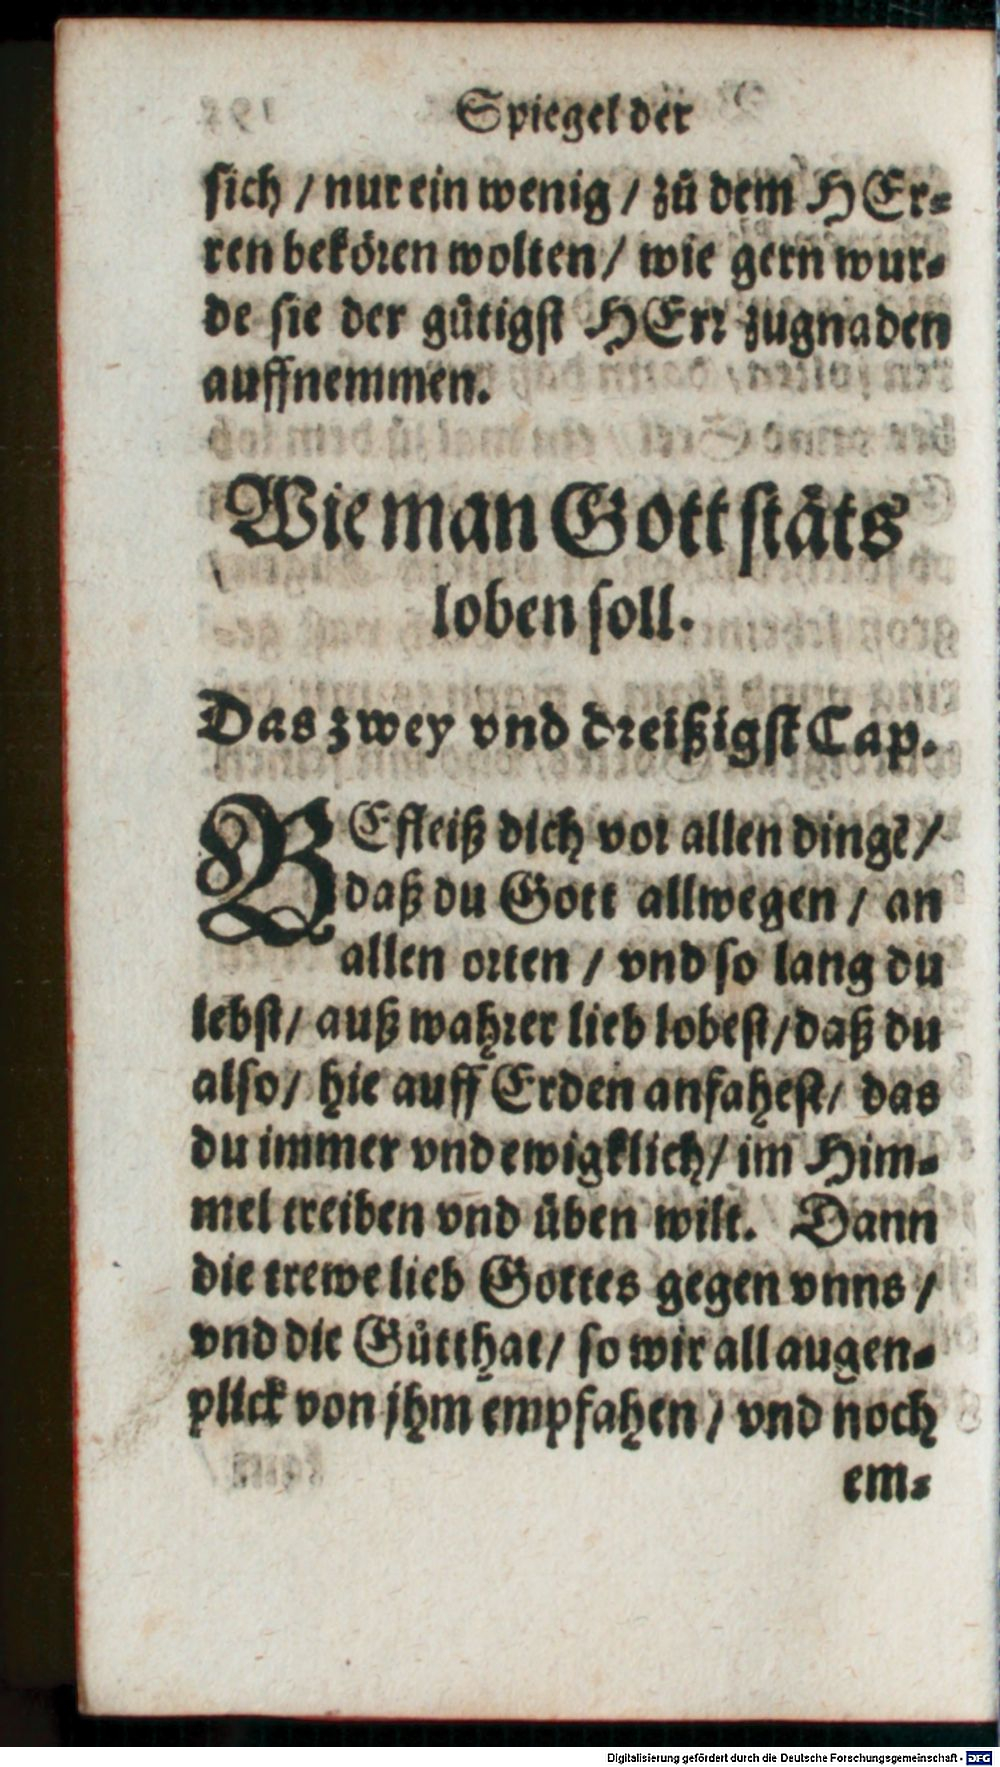 Spiegel der
sich / nur ein wenig / zů dem HEr-
ren bekören wolten / wie gern wur-
de sie der gütigst HErr zugnaden
auffnemmen.
Wie man Gott stäts
loben soll.
Das zwey vnd dreißigst Cap.
BEfleiß dich vor allen dingē /
daß du Gott allwegen / an
allen orten / vnd so lang du
lebst / auß wahrer lieb lobest / daß du
also / hie auff Erden anfahest / das
du immer vnd ewigklich / im Him-
mel treiben vnd üben wilt. Dann
die trewe lieb Gottes gegen vnns /
vnd die Gůtthat / so wir all augen-
plick von jhm empfahen / vnd noch
em-
Digitalisierung gefördert durch die Deutsche Forschungsgemeinschaft - DFG